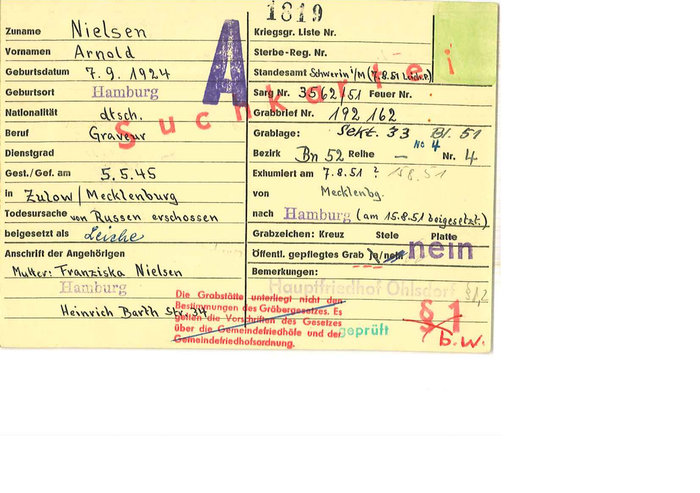 1819
Zuname Nielsen
Vornamen Arnold
Geburtsdatum 7.9.1924
Geburtsort Hamburg
Nationalität dtsch.
Beruf Graveur
Dienstgrad
Gest./Gef. am 5.5.45
in Zülow/Mecklenburg
Todesursache von Russen erschossen
beigesetzt als Leiche
Anschrift der Angehörigen
Mutter: Franziska Nielsen
Hamburg
Heinrich Barth Str. 34
A
Suchkartei
Kriegsgr. Liste Nr.
Sterbe-Reg. Nr.
Standesamt Schwerin i/M (7.8.51
Sarg Nr. 3562/51 Feuer Nr.
Grabbrief Nr. 192 162
Grablage: Sekt. 33 Bl. 51
No 4
Bezirk Bn 52 Reihe — Nr. 4
Exhumiert am 7.8.51 ? 15.8.51
von Mecklenbg.
nach Hamburg (am 15.8.51 beigesetzt.)
Grabzeichen: Kreuz Stele Platte
Öffentl. gepflegtes Grab Ja/nein nein
Bemerkungen:
Hauptfriedhof Ohlsdorf
Die Grabstätte unterliegt nicht den
Bestimmungen des Gräbergesetzes. Es
gelten die Vorschriften des Gesetzes
über die Gemeindefriedhöfe und der
Gemeindefriedhofsordnung.
geprüft
§ 1
b.w.